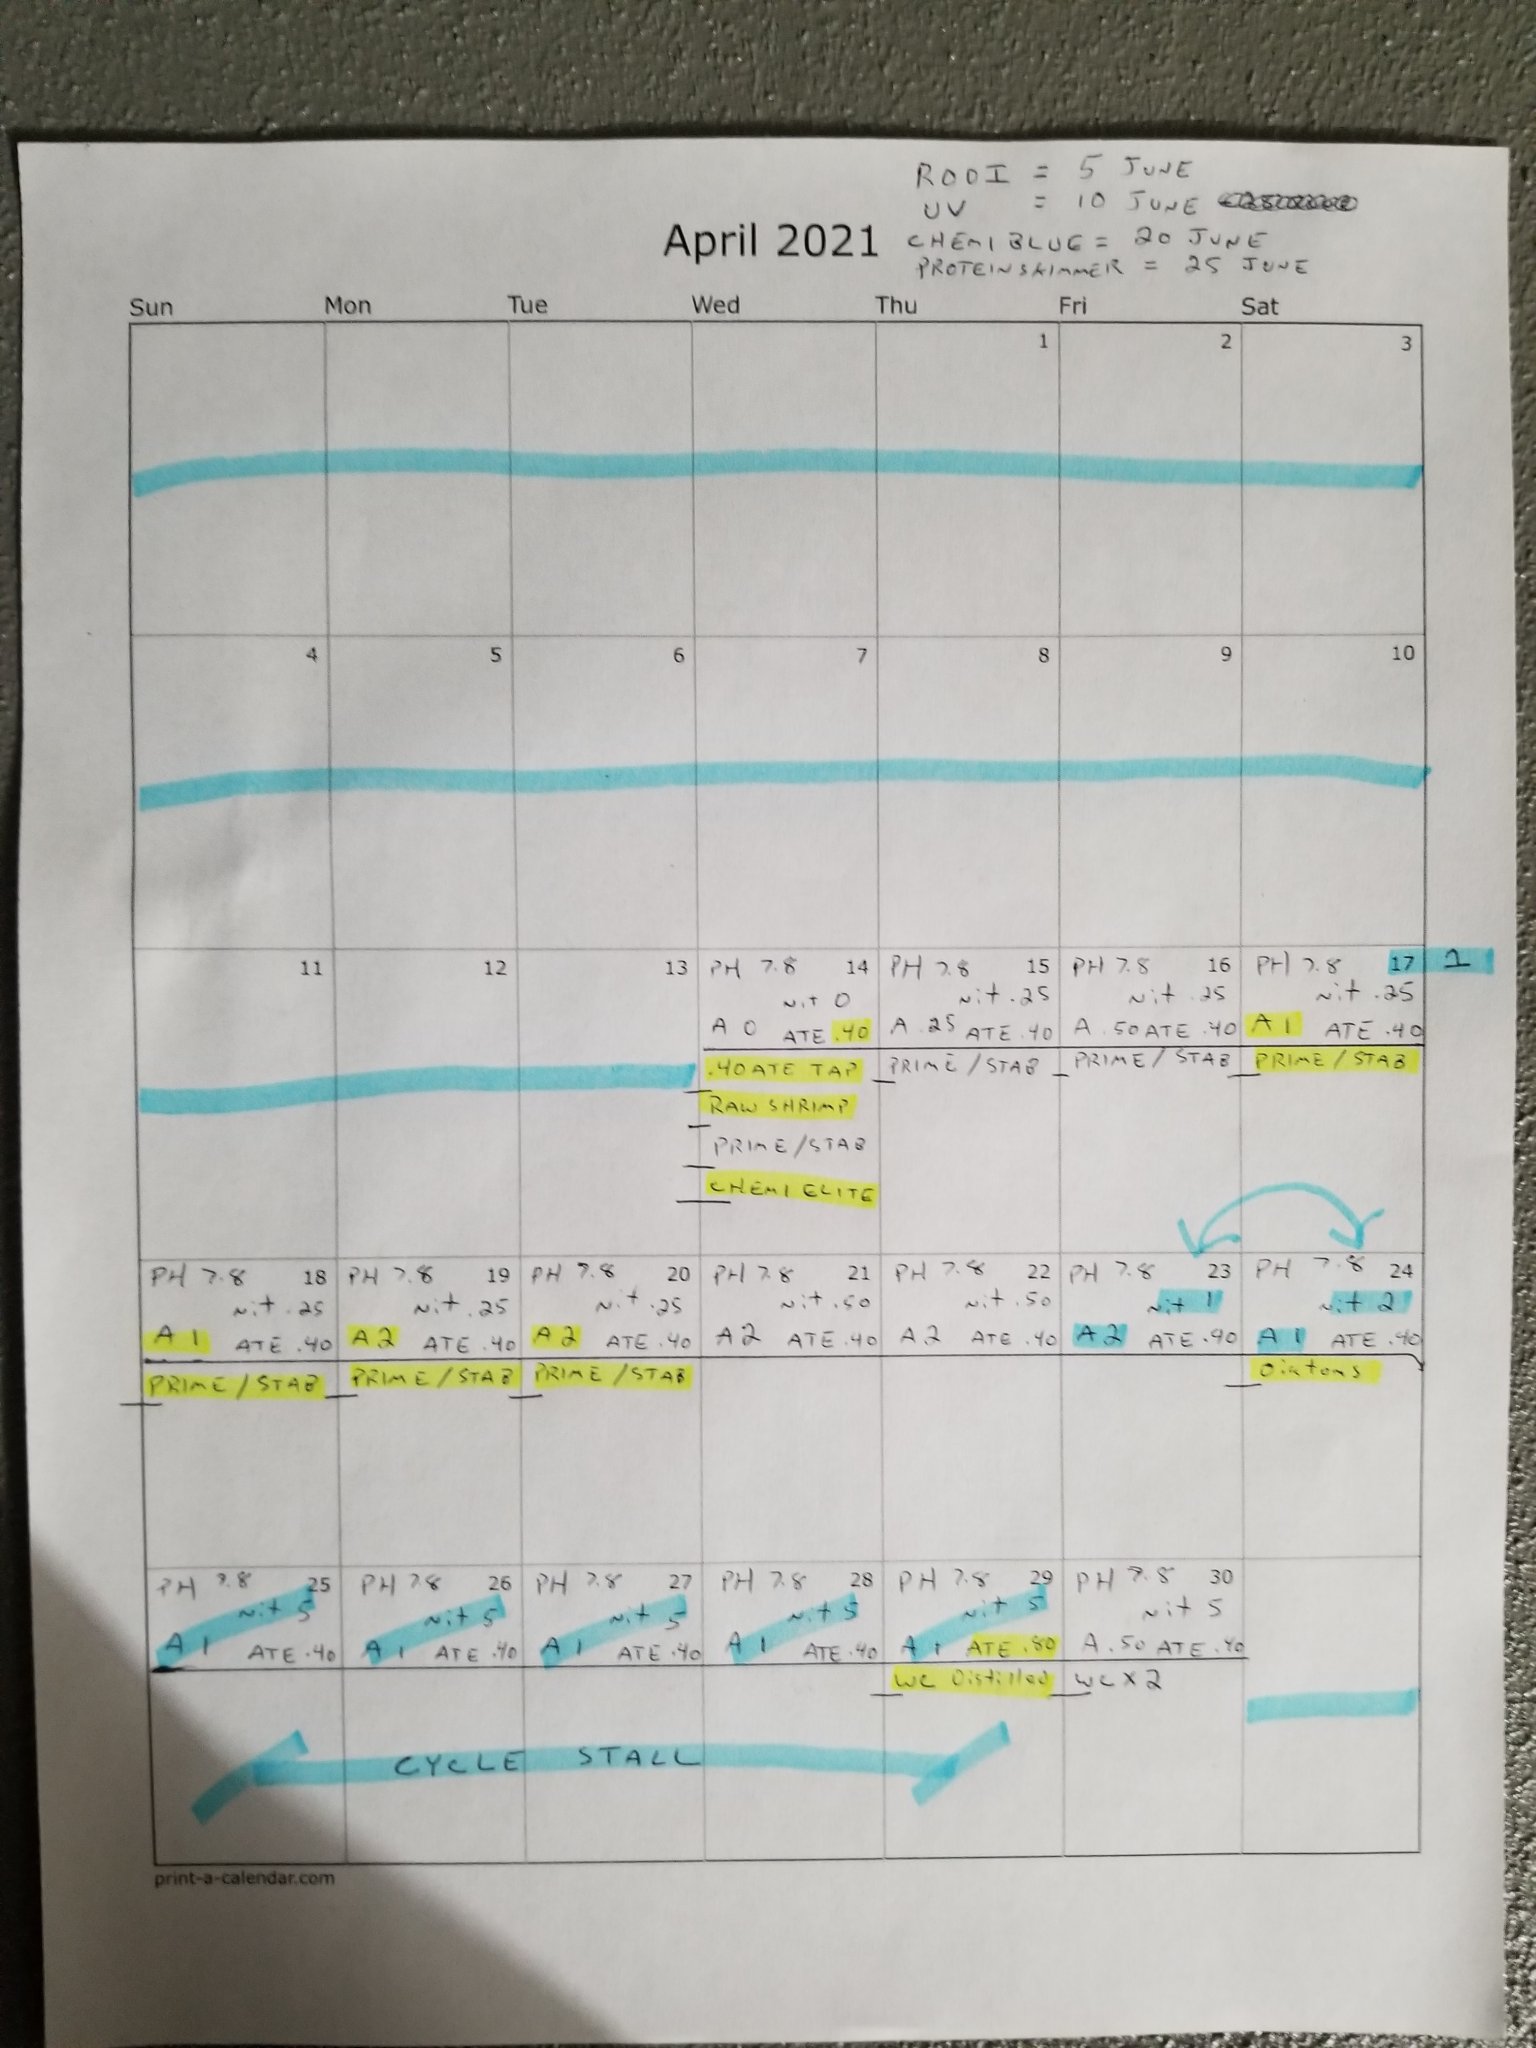 RODI = 5 JUNE
UV = 10 JUNE
April 2021
CHEMI BLUE = 20 JUNE
PROTEIN SKIMMER = 25 JUNE
Sun Mon Tue Wed Thu Fri Sat
1 2 3
4 5 6 7 8 9 10
11 12 13
PH 7.8 14
Nit 0
A 0 ATE .40
.40 ATE TAP
RAW SHRIMP
PRIME/STAB
CHEMI ELITE
PH 7.8 15
Nit .25
A .25 ATE .40
PRIME/STAB
PH 7.8 16
Nit .25
A .50 ATE .40
PRIME/STAB
PH 7.8 17 1
Nit .25
A 1 ATE .40
PRIME/STAB
PH 7.8 18
Nit .25
A 1 ATE .40
PRIME/STAB
PH 7.8 19
Nit .25
A 2 ATE .40
PRIME/STAB
PH 7.8 20
Nit .25
A 2 ATE .40
PRIME/STAB
PH 7.8 21
Nit .50
A 2 ATE .40
PH 7.8 22
Nit .50
A 2 ATE .40
PH 7.8 23
Nit 1
A 2 ATE .40
PH 7.8 24
Nit 2
A 1 ATE .40
Diatoms
PH 7.8 25
Nit 5
A 1 ATE .40
PH 7.8 26
Nit 5
A 1 ATE .40
PH 7.8 27
Nit 5
A 1 ATE .40
PH 7.8 28
Nit 5
A 1 ATE .40
PH 7.8 29
Nit 5
A 1 ATE .80
WC Distilled
PH 7.8 30
Nit 5
A .50 ATE .40
WC X 2
CYCLE STALL
print-a-calendar.com